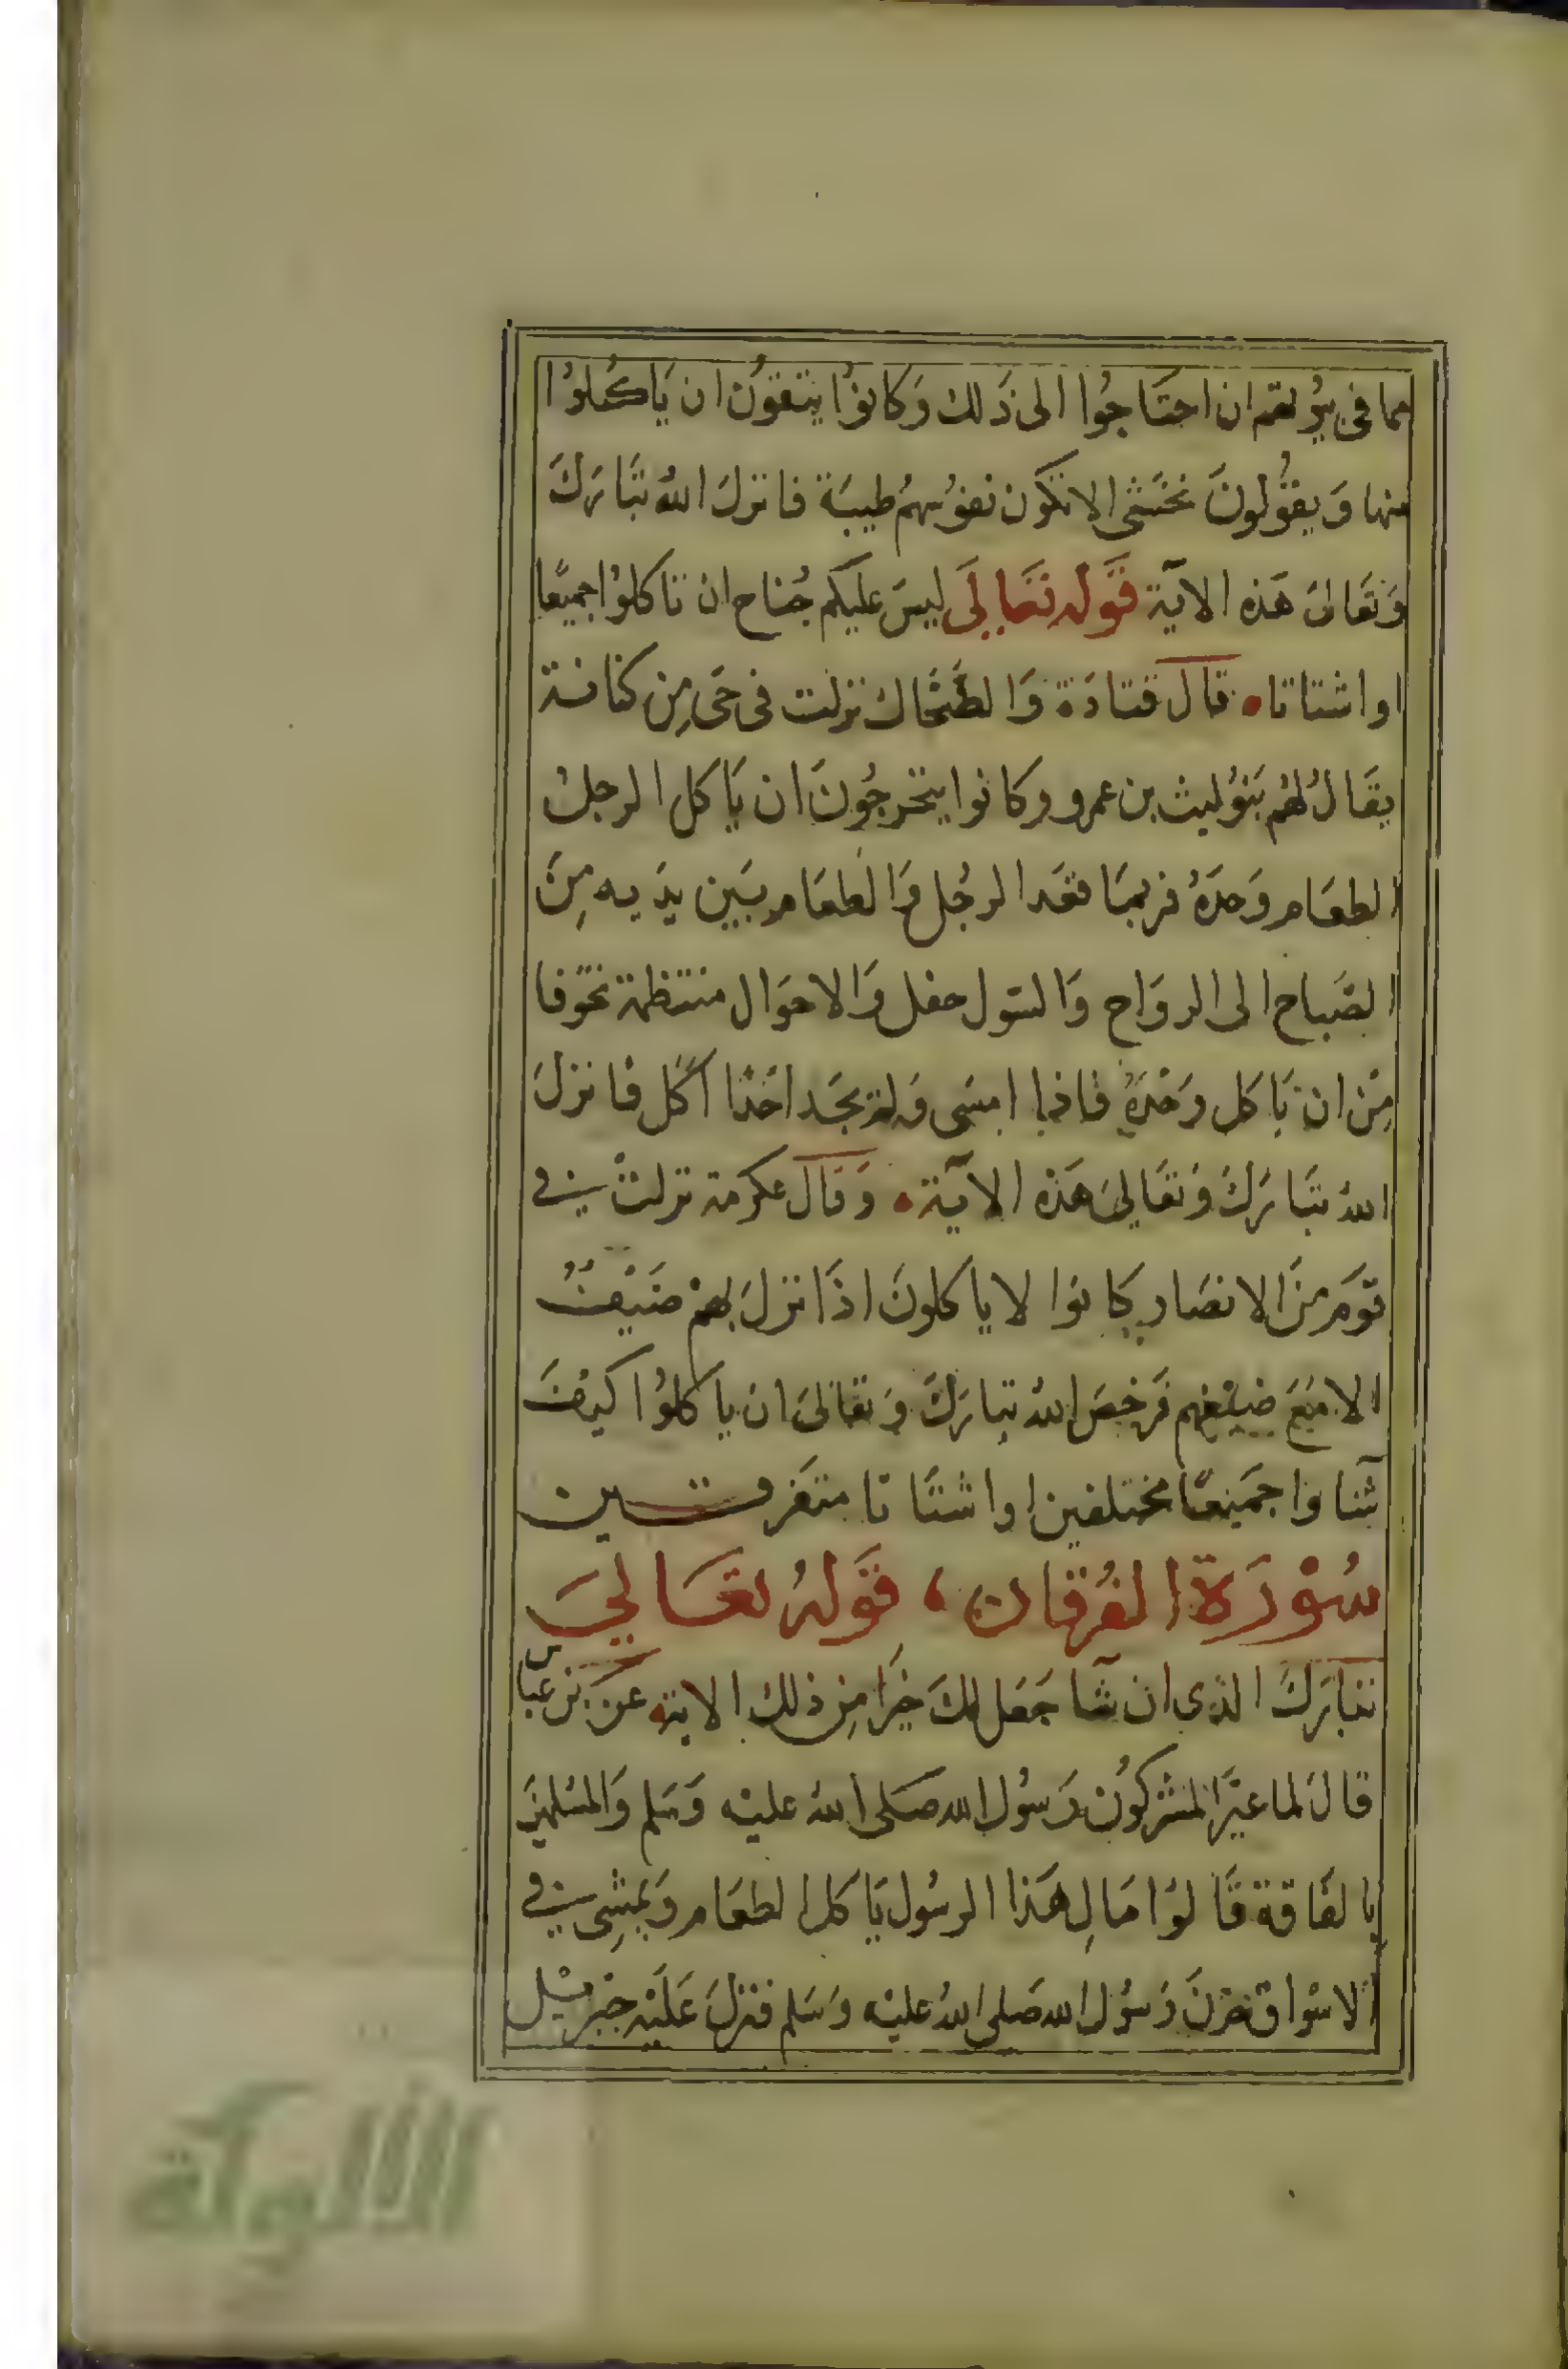 مما في بيوتهم ان احتاجوا الى ذلك وكانوا يتقون ان ياكلوا
منها ويقولون نخشى الا تكون نفوسهم طيبة فانزل الله تبارك
وتعالى هذه الآية قوله تعالى ليس عليكم جناح ان تاكلوا جميعا
او اشتاتا قال قتادة والضحاك نزلت في حى من كنانة
يقال لهم بنو ليث بن عمرو وكانوا يتحرجون ان ياكل الرجل
الطعام وحده فربما قعد الرجل والطعام بين يديه من
الصباح الى الرواح والشول حفل والاحوال منتظمة تخوفا
من ان ياكل وحده فاذا امسى ولم يجد احدا اكل فانزل
الله تبارك وتعالى هذه الآية وقال عكرمة نزلت في
قوم من الانصار كانوا لا ياكلون اذا نزل بهم ضيف
الا مع ضيفهم فرخص الله تبارك وتعالى ان ياكلوا كيف
شاوا جميعا مختلفين او اشتاتا متفرقين
سورة الفرقان، قوله تعالى
تبارك الذى ان شا جعل لك خيرا من ذلك الاية عن بن عباس
قال لما عير المشركون رسول الله صلى الله عليه وسلم والمسلمين
بالفاقة قالوا مال هذا الرسول ياكل الطعام ويمشي في
الاسواق حزن رسول الله صلى الله عليه وسلم فنزل عليه جبريل
الألوكة